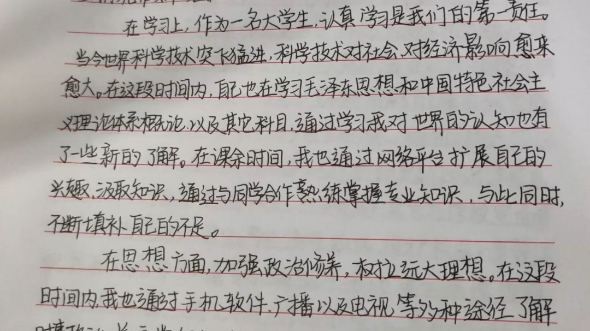 在学习上，作为一名大学生，认真学习是我们的第一责任。
当今世界科学技术突飞猛进，科学技术对社会、对经济影响愈来
愈大。在这段时间内，自己也在学习毛泽东思想和中国特色社会主
义理论体系概论，以及其它科目，通过学习我对世界的认知也有
了一些新的了解。在课余时间，我也通过网络平台扩展自己的
兴趣，汲取知识，通过与同学合作熟练掌握专业知识，与此同时，
不断填补自己的不足。
在思想方面，加强政治修养，树立远大理想。在这段
时间内，我也通过手机软件、广播以及电视等多种途径了解